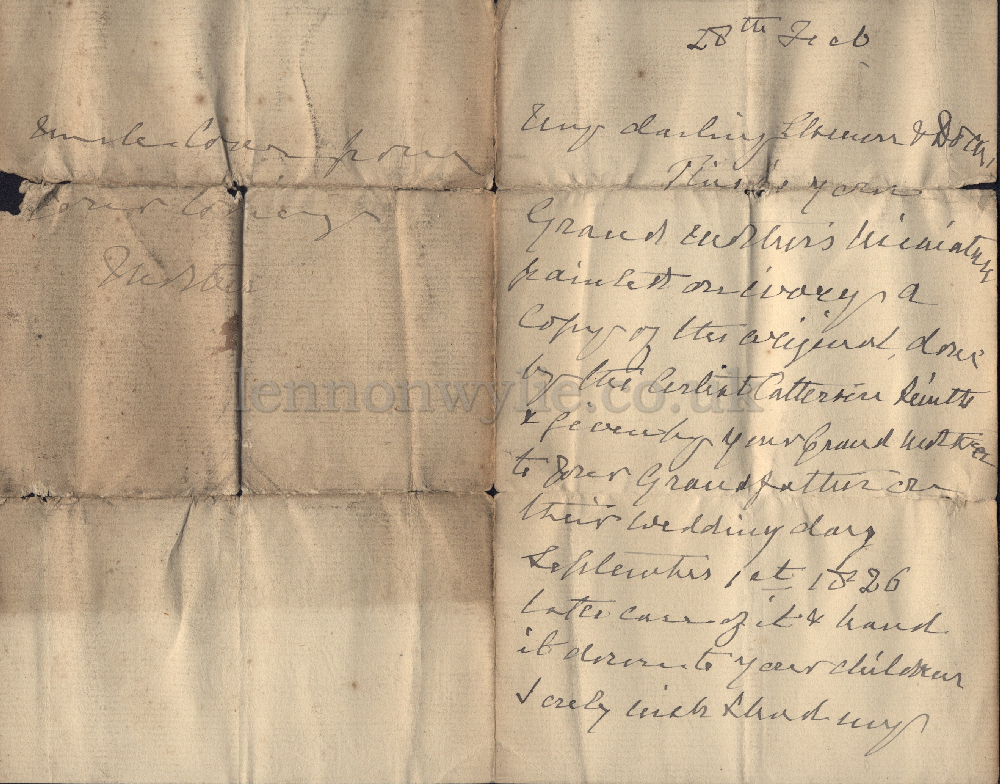 28th Feb
My darling Eleanor & Dot,
This is your
Grand Mother's Miniature
painted on ivory, a
Copy of the original, done
by the Artist Catterson Smith
& given by your Grand Mother
to your Grandfather on
their wedding day
September 1st 1826
take care of it & hand
it down to your children
I only wish I had my
much love from
Your loving
Mother
lennonwylie.co.uk